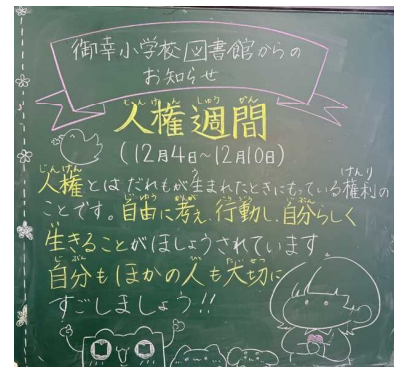 御幸小学校図書館からの
お知らせ
人権週間
(12月4日～12月10日)
人権とはだれもが生まれたときにもっている権利の
ことです。自由に考え、行動し、自分らしく
生きることがほしょうされています
自分もほかの人も大切に
すごしましょう!!